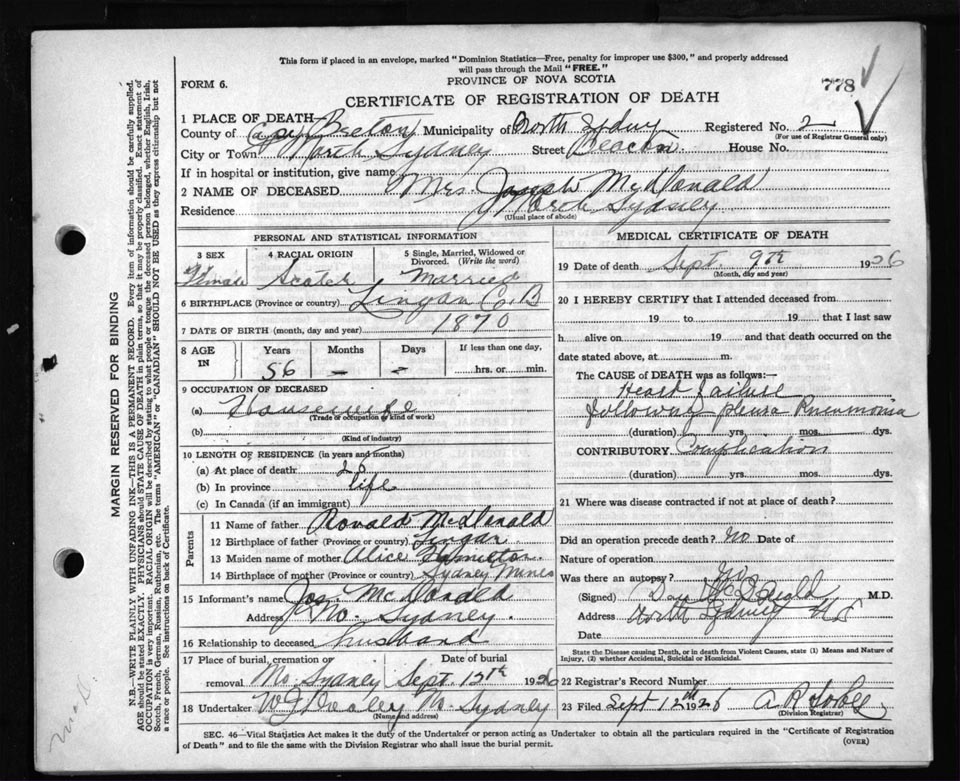 This form if placed in an envelope, marked "Dominion Statistics—Free, penalty for improper use $300," and properly addressed
will pass through the Mail "FREE."
FORM 6.
PROVINCE OF NOVA SCOTIA
778
CERTIFICATE OF REGISTRATION OF DEATH
1 PLACE OF DEATH—
County of Cape Breton Municipality of North Sydney Registered No. 2
(For use of Registrar General only)
City or Town North Sydney Street Beacon House No.
If in hospital or institution, give name
2 NAME OF DECEASED Mrs. Joseph McDonald
Residence North Sydney
(Usual place of abode)
PERSONAL AND STATISTICAL INFORMATION
3 SEX 4 RACIAL ORIGIN 5 Single, Married, Widowed or
Divorced. (Write the word)
Female Scotch Married
6 BIRTHPLACE (Province or country) Lingan C. B
7 DATE OF BIRTH (month, day and year) 1870
8 AGE IN Years Months Days If less than one day,
56 — — hrs. or min.
9 OCCUPATION OF DECEASED
(a) Housewife
(Trade or occupation or kind of work)
(b)
(Kind of industry)
10 LENGTH OF RESIDENCE (in years and months)
(a) At place of death
(b) In province life
(c) In Canada (if an immigrant)
Parents
11 Name of father Ronald McDonald
12 Birthplace of father (Province or country) Lingan
13 Maiden name of mother Alice
14 Birthplace of mother (Province or country) Sydney Mines
15 Informant's name Jos. McDonald
Address No. Sydney.
16 Relationship to deceased husband
17 Place of burial, cremation or removal Date of burial
No Sydney Sept. 1926
18 Undertaker No. Sydney
(Name and address)
MEDICAL CERTIFICATE OF DEATH
19 Date of death Sept. 9th 1926
(Month, day and year)
20 I HEREBY CERTIFY that I attended deceased from
19 to 19 that I last saw
h alive on 19 and that death occurred on the
date stated above, at m.
The CAUSE of DEATH was as follows:—
Heart failure
following pleura Pneumonia
(duration) yrs. mos. dys.
CONTRIBUTORY. Complication
(duration) yrs. mos. dys.
21 Where was disease contracted if not at place of death?
Did an operation precede death? No Date of
Nature of operation
Was there an autopsy? No
(Signed) M.D.
Address North Sydney NS
Date
State the Disease causing Death, or in death from Violent Causes, state (1) Means and Nature of
Injury, (2) whether Accidental, Suicidal or Homicidal.
22 Registrar's Record Number
23 Filed Sept 12th 1926 A R
(Division Registrar)
SEC. 46—Vital Statistics Act makes it the duty of the Undertaker or person acting as Undertaker to obtain all the particulars required in the "Certificate of Registration
of Death" and to file the same with the Division Registrar who shall issue the burial permit.
(OVER)
MARGIN RESERVED FOR BINDING
N.B.—WRITE PLAINLY, WITH UNFADING INK—THIS IS A PERMANENT RECORD. Every item of information should be carefully supplied.
AGE should be stated EXACTLY. PHYSICIANS should STATE CAUSE OF DEATH in plain terms, so that it may be properly classified. Exact statement of
OCCUPATION is very important. RACIAL ORIGIN will be described by stating to what people or tongue the deceased person belonged, whether English, Irish,
Scotch, French, German, Russian, Ruthenian, etc. The terms "AMERICAN" or "CANADIAN" SHOULD NOT BE USED as they express citizenship but not
a race or people. See instructions on back of Certificate.